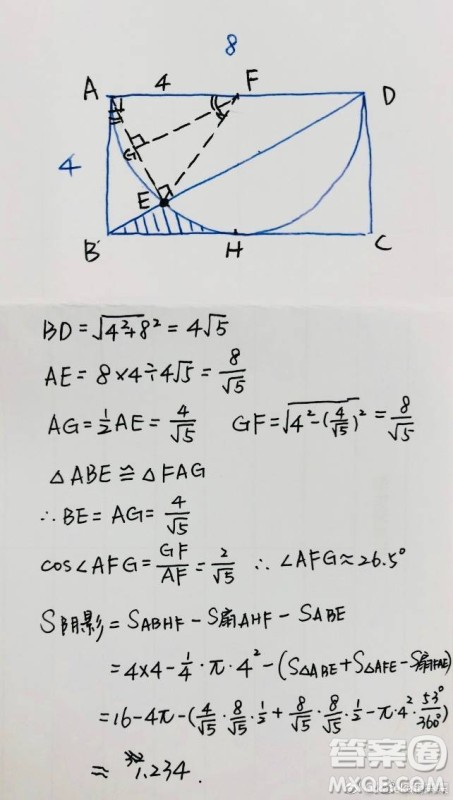 8
A 4 F D
4
E
G
B H C
BD = √4²+8² = 4√5
AE = 8×4÷4√5 = 8/√5
AG = 1/2 AE = 4/√5 GF = √4²-(4/√5)² = 8/√5
△ABE ≌ △FAG
∴ BE = AG = 4/√5
cos∠AFG = GF/AF = 2/√5 ∴ ∠AFG ≈ 26.5°
S阴影 = SABHF - S扇AHF - SABE
= 4×4 - 1/4·π·4² - (S△ABE + S△AFE - S扇FAE)
= 16 - 4π - (4/√5·8/√5·1/2 + 8/√5·8/√5·1/2 - π·4²·53°/360°)
≈ 1.234.
答案圈
MXQE.COM